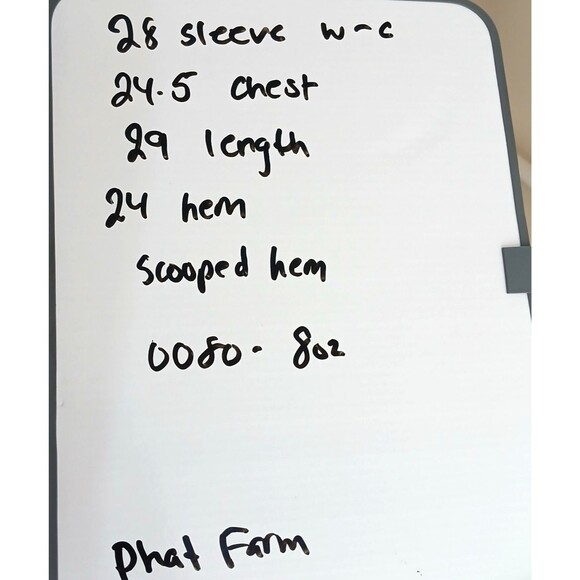 28 sleeve w-c
24.5 chest
29 length
24 hem
scooped hem
0080- 8oz
Phat Farm